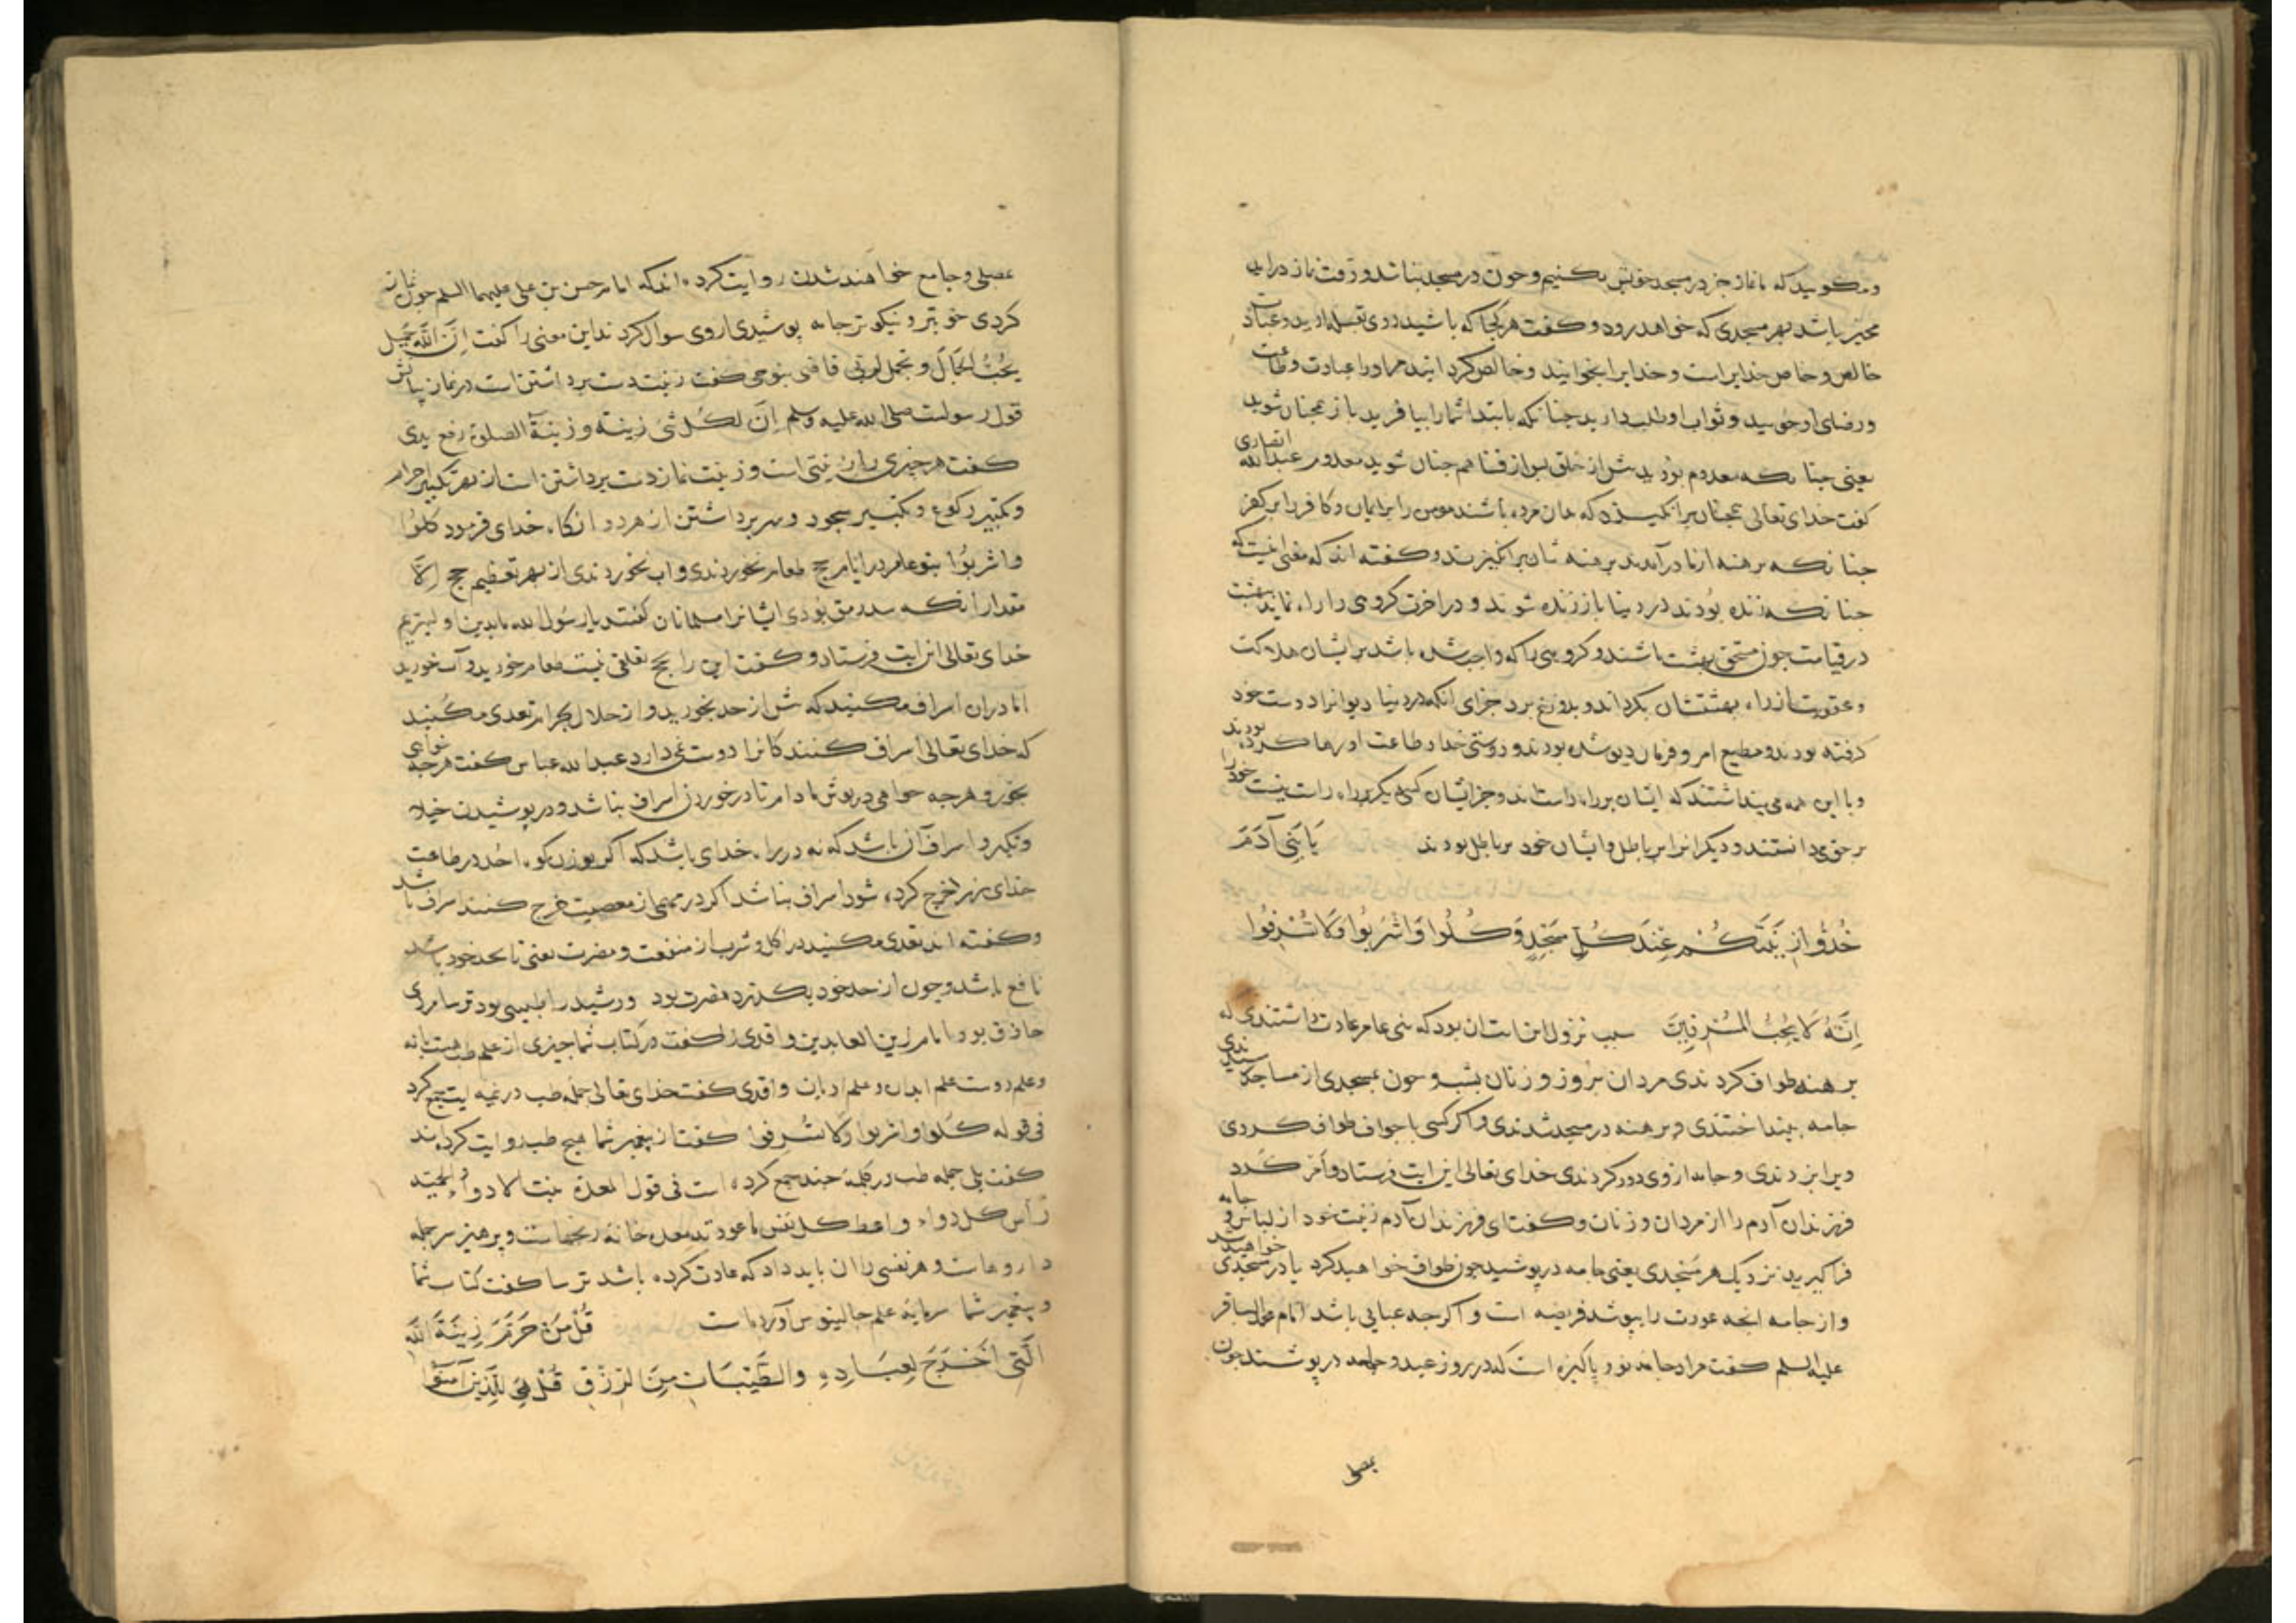 و مکویید که ما نماز جز در مسجد خویش نکنیم و چون در مسجد نباشد و وقت نماز درآید
مخیر باشد بهر مسجدی که خواهد رود و کفت هر کجا که باشید روی بقبله آرید و عبادت
خالص و خاص خدایراست و خدایرا بخوانید و خالص کرد انیده مر او را عبادت و طاعت
و رضای او جویید و ثواب او طلب دارید چنانکه بابتدا شما را بیافرید باز همچنان شوید
یعنی چنانکه معدوم بودید پیش از خلق پس از فنا هم چنان شوید معدوم عبدالله انصاری
کفت خدای تعالی همچنان برانکیزد که بران مرده باشند مومن را بر ایمان و کافر را بر کفر
چنانکه برهنه از مادر آمدند برهنه شان برانکیزند و کفته اند که معنی اینست که
چنانکه زنده بودند در دنیا باز زنده شوند و در اخرت کروهی را راه نماید ببهشت
در قیامت چون مستحق بهشت باشند و کروهی را که واجب شده باشد بر ایشان هلاکت
و عقوبت از راه بهشتشان بکرداند و بدوزخ برد جزای انکه در دنیا دیوانرا دوست خود
کرفته بودند و مطیع امر و فرمان دیو شده بودند و دوستی خدا و طاعت او رها کرده بودند
و با این همه می پنداشتند که ایشان بر راه راست اند و جز ایشان کسی دیکر بر راه راست نیست خود را
بر حق می دانستند و دیکرانرا بر باطل و ایشان خود بر باطل بودند یَا بَنِی آدَمَ
خُذُوا زِینَتَکُمْ عِنْدَ کُلِّ مَسْجِدٍ وَکُلُوا وَاشْرَبُوا وَلَا تُسْرِفُوا
اِنَّهُ لَا یُحِبُّ الْمُسْرِفِینَ سبب نزول این ایت ان بود که بنی عامر عادت داشتندی که
برهنه طواف کردندی مردان بروز و زنان بشب و چون بمسجدی از مساجد رسیدندی
جامه بینداختندی و برهنه در مسجد شدندی و اکر کسی با جواف طواف کردی
ویرا بزدندی و جامه از وی دور کردندی خدای تعالی این ایت فرستاد و امر کرد
فرزندان آدم را از مردان و زنان و کفت ای فرزندان آدم زینت خود از لباس و جامه
فراکیرید نزدیک هر مسجدی یعنی جامه درپوشید چون طواف خواهید کرد یا در مسجدی خواهید شد
و از جامه انچه عورت را بپوشد فریضه است و اکرچه عبایی باشد امام محمد الباقر
علیه السلم کفت مراد جامه نو و پاکیزه است که در روز عید و جامعه درپوشند چون
بمصلی
بمصلی و جامع خواهند شدن روایت کرده اند که امام حسن بن علی علیهما السلم چون نماز
کردی خوبتر و نیکوتر جامه پوشیدی از وی سوال کردند این معنی را کفت اِنَّ اللهَ جَمِیلٌ
یُحِبُّ الْجَمَالَ و تجمل لربی قاضی بنوحی کفت زینت دست برداشتن است در نماز
قول رسولست صلی الله علیه وسلم اِنَّ لکُل شیء زینة و زینة الصلوة رفع یدی
کفت هر چیزی را زینتی است و زینت نماز دست برداشتن است از بهر تکبیر احرام
و تکبیر رکوع و تکبیر سجود و سر برداشتن از هر دو انکاه خدای فرمود کُلُوا
وَاشْرَبُوا بنو عامر در ایام حج طعام نخوردندی و آب نخوردندی از بهر تعظیم حج اِلَّا
مقدار آنکه سد رمق بودی ایشانرا مسلمانان کفتند یا رسول الله ما بدین اولیتریم
خدای تعالی این ایت فرستاد و کفت این را بحج تعلقی نیست طعام خورید و آب خورید
اما دران اسراف مکنید که بیش از حد بخورید و از حلال بحرام تعدی مکنید
که خدای تعالی اسراف کنندکانرا دوست نمی دارد عبد الله عباس کفت هر چه خواهی
بخور و هر چه خواهی درپوش مادام تا در خوردن اسراف نباشد و در پوشیدن خیلا
و تکبر و اسراف آن باشد که نه در راه خدای باشد که اکر بوزن کوه احد در طاعت
خدای زر خرج کرده شود اسراف نباشد اکر درمی از معصیت خرج کنند اسراف باشد
و کفته اند تعدی مکنید در اکل و شرب از منفعت و مضرت یعنی تا بحد خود باشد
نافع باشد و چون از حد خود بکذرد مضرت بود و رشید را طبیبی بود ترسا مردی
حاذق بود امام زین العابدین واقدی را کفت در کتاب شما چیزی از علم طب هست یا نه
و علم دوست علم ابدان و علم ادیان واقدی کفت خدای تعالی جمله طب در نیمه ایت جمع کرد
فی قوله کُلوا واشربوا ولا تسرفوا کفت از پیغمبر شما هیچ طب روایت کرده اند
کفت بلی جمله طب در کلمهٔ چند جمع کرده است فی قول المعدة بیت الادواء والحمیة
رأس کل دواء واعط کل نفس ما عودته معده خانهٔ رنجهاست و پرهیز سر جمله
داروهاست و هر نفسی را آن باید داد که عادت کرده باشد ترسا کفت کتاب شما
و پیغمبر شما سرمایهٔ علم جالینوس آورده است قُلْ مَنْ حَرَّمَ زِینَةَ اللهِ
الَّتِی اَخْرَجَ لِعِبَادِهِ وَالطَّیِّبَاتِ مِنَ الرِّزْقِ قُلْ هِیَ لِلَّذِینَ آمَنُوا